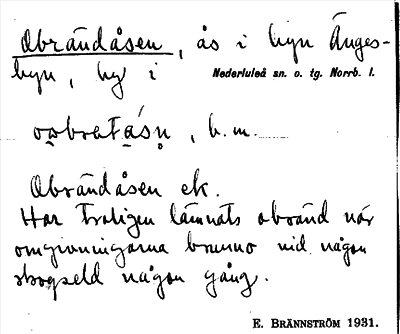 Obrändåsen, ås i byn Änges-
byn, hg i Nederluleå sn. o. tg. Norrb. l.
, b. m.
Obrändåsen ek.
Har troligen lämnats obränd när
omgivningarna brunno vid någon
skogseld någon gång.
E. BRÄNNSTRÖM 1931.